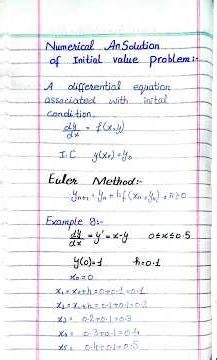 Numerical An Solution
of Initial value problem:-
A differential equation
associated with inital
condition.
dy/dx = f(x,y)
I.C y(x₀) = y₀
Euler Method:-
yₙ₊₁ = yₙ + hf(xₙ, yₙ), n≥0
Example 8:-
dy/dx = y' = x-y 0≤x≤0.5
y(0)=1 h=0.1
x₀=0
x₁ = x₀+h = 0+0.1 = 0.1
x₂ = x₁+h = 0.1+0.1 = 0.2
x₃ = 0.2+0.1 = 0.3
x₄ = 0.3+0.1 = 0.4
x₅ = 0.4+0.1 = 0.5